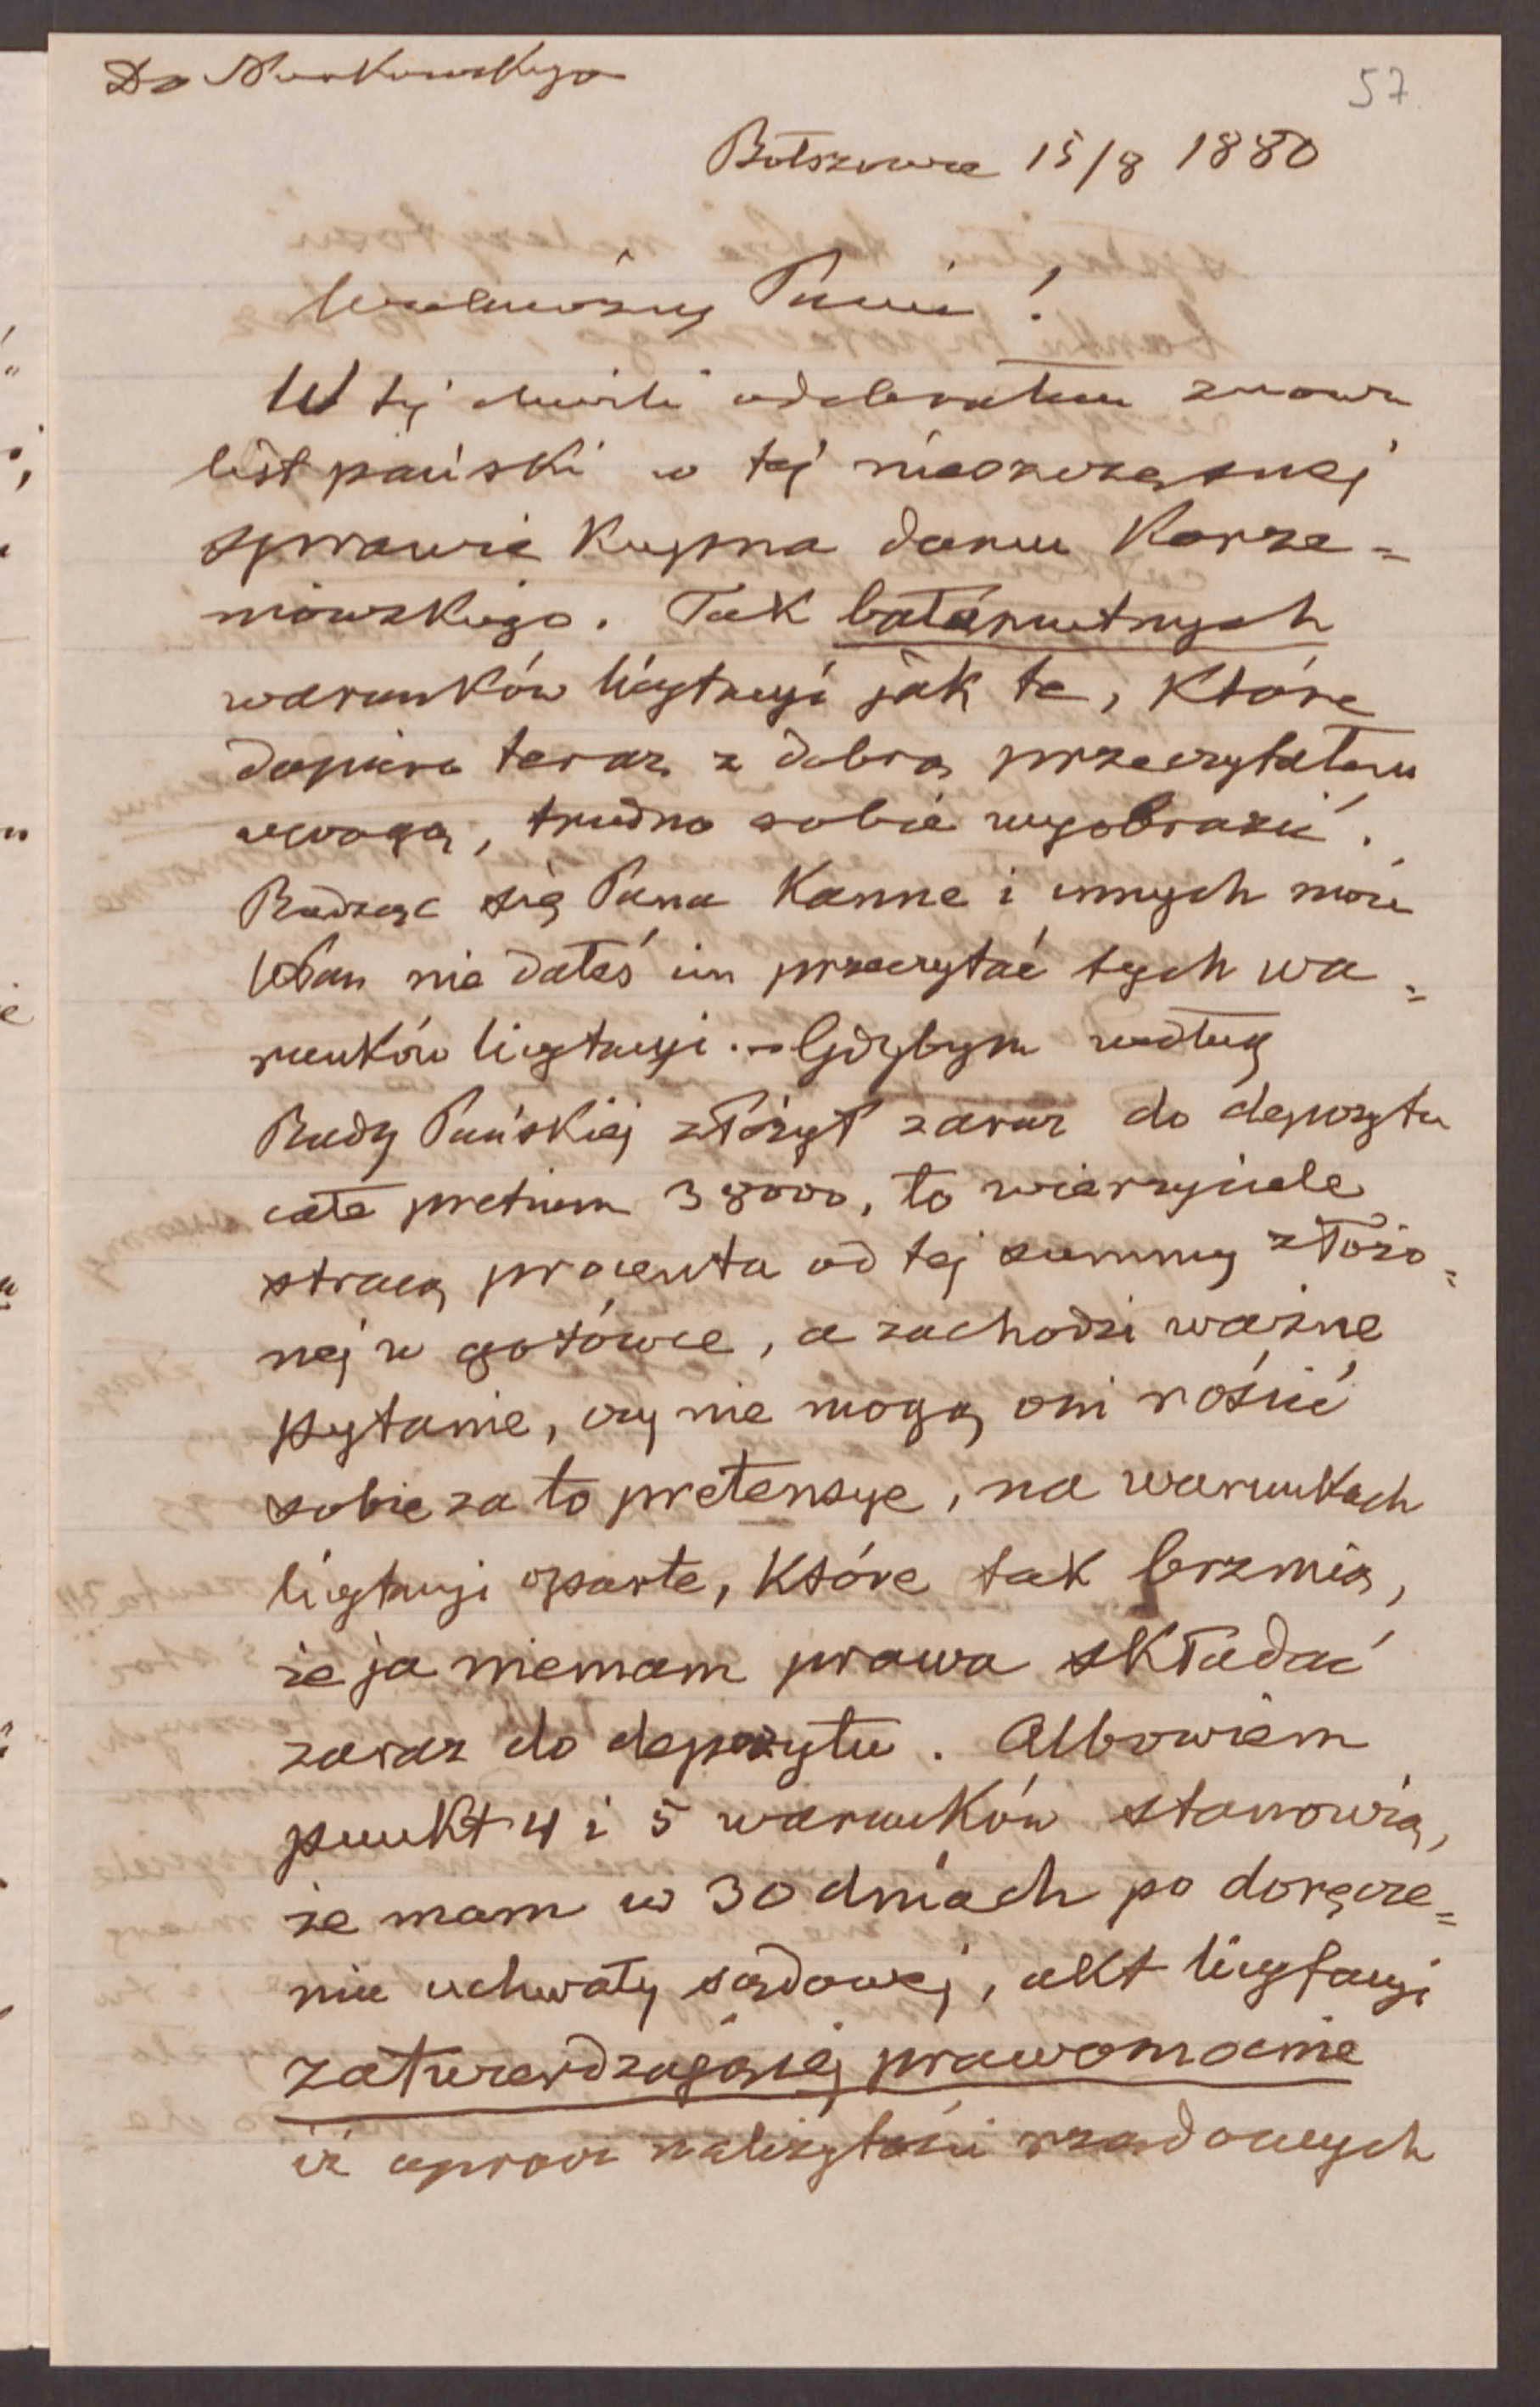 57
Bołszowce 15/8 1880
Wielmożny Panie!
W tej chwili odebrałem znowu
list pański w tej nieszczęsnej
sprawie Kupna domu Korze=
niowskiego. Tak bałamutnych
warunków licytacyi jak te, Które
dopiero teraz z dobrą przeczytałem
uwagą, trudno sobie wyobrazić.
Radząc się Pana Kanne i innych może
WPan nie dałeś im przeczytać tych wa=
runków licytacyi. – Gdybym według
Rady Pańskiej złożył zaraz do depozytu
całe pretium 38000, to wierzyciele
stracą procenta od tej summy złożo=
nej w gotówce, a zachodzi ważne
pytanie, czy nie mogą oni rościć
sobie za to pretensye, na warunkach
licytacyi oparte, Które tak brzmią,
że ja niemam prawa sKładać
zaraz do depozytu. Albowiem
punkt 4 i 5 warunków stanowią,
że mam w 30 dniach po doręcze=
niu uchwały sądowej, akt licytacyi
zatwierdzającej prawomocnie
iż oprócz należytości rządowych